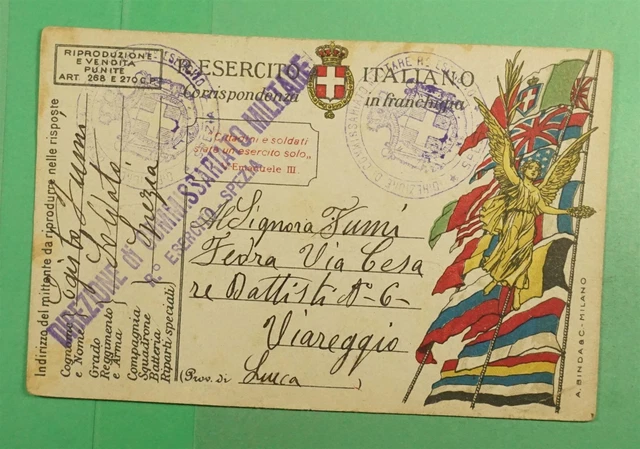 RIPRODUZIONE
E VENDITA
PUNITE
ART. 268 E 270 C.P.
ESERCITO ITALIANO
Corrispondenza in franchigia
"Cittadini e soldati
siate un esercito solo„
Emanuele III
DIREZIONE DI COMMISSARIATO MILITARE
R° ESERCITO - SPEZIA
Indirizzo del mittente da riprodurre nelle risposte
Cognome e Nome
Grado
Reggimento e Arma
Compagnia
Squadrone
Batteria
Riparti speciali
Soldato
Spezia
Signora Fumi
Fedra Via Cesa
re Battisti N-6-
Viareggio
(Prov. di Lucca)
A. BINDA & C.-MILANO